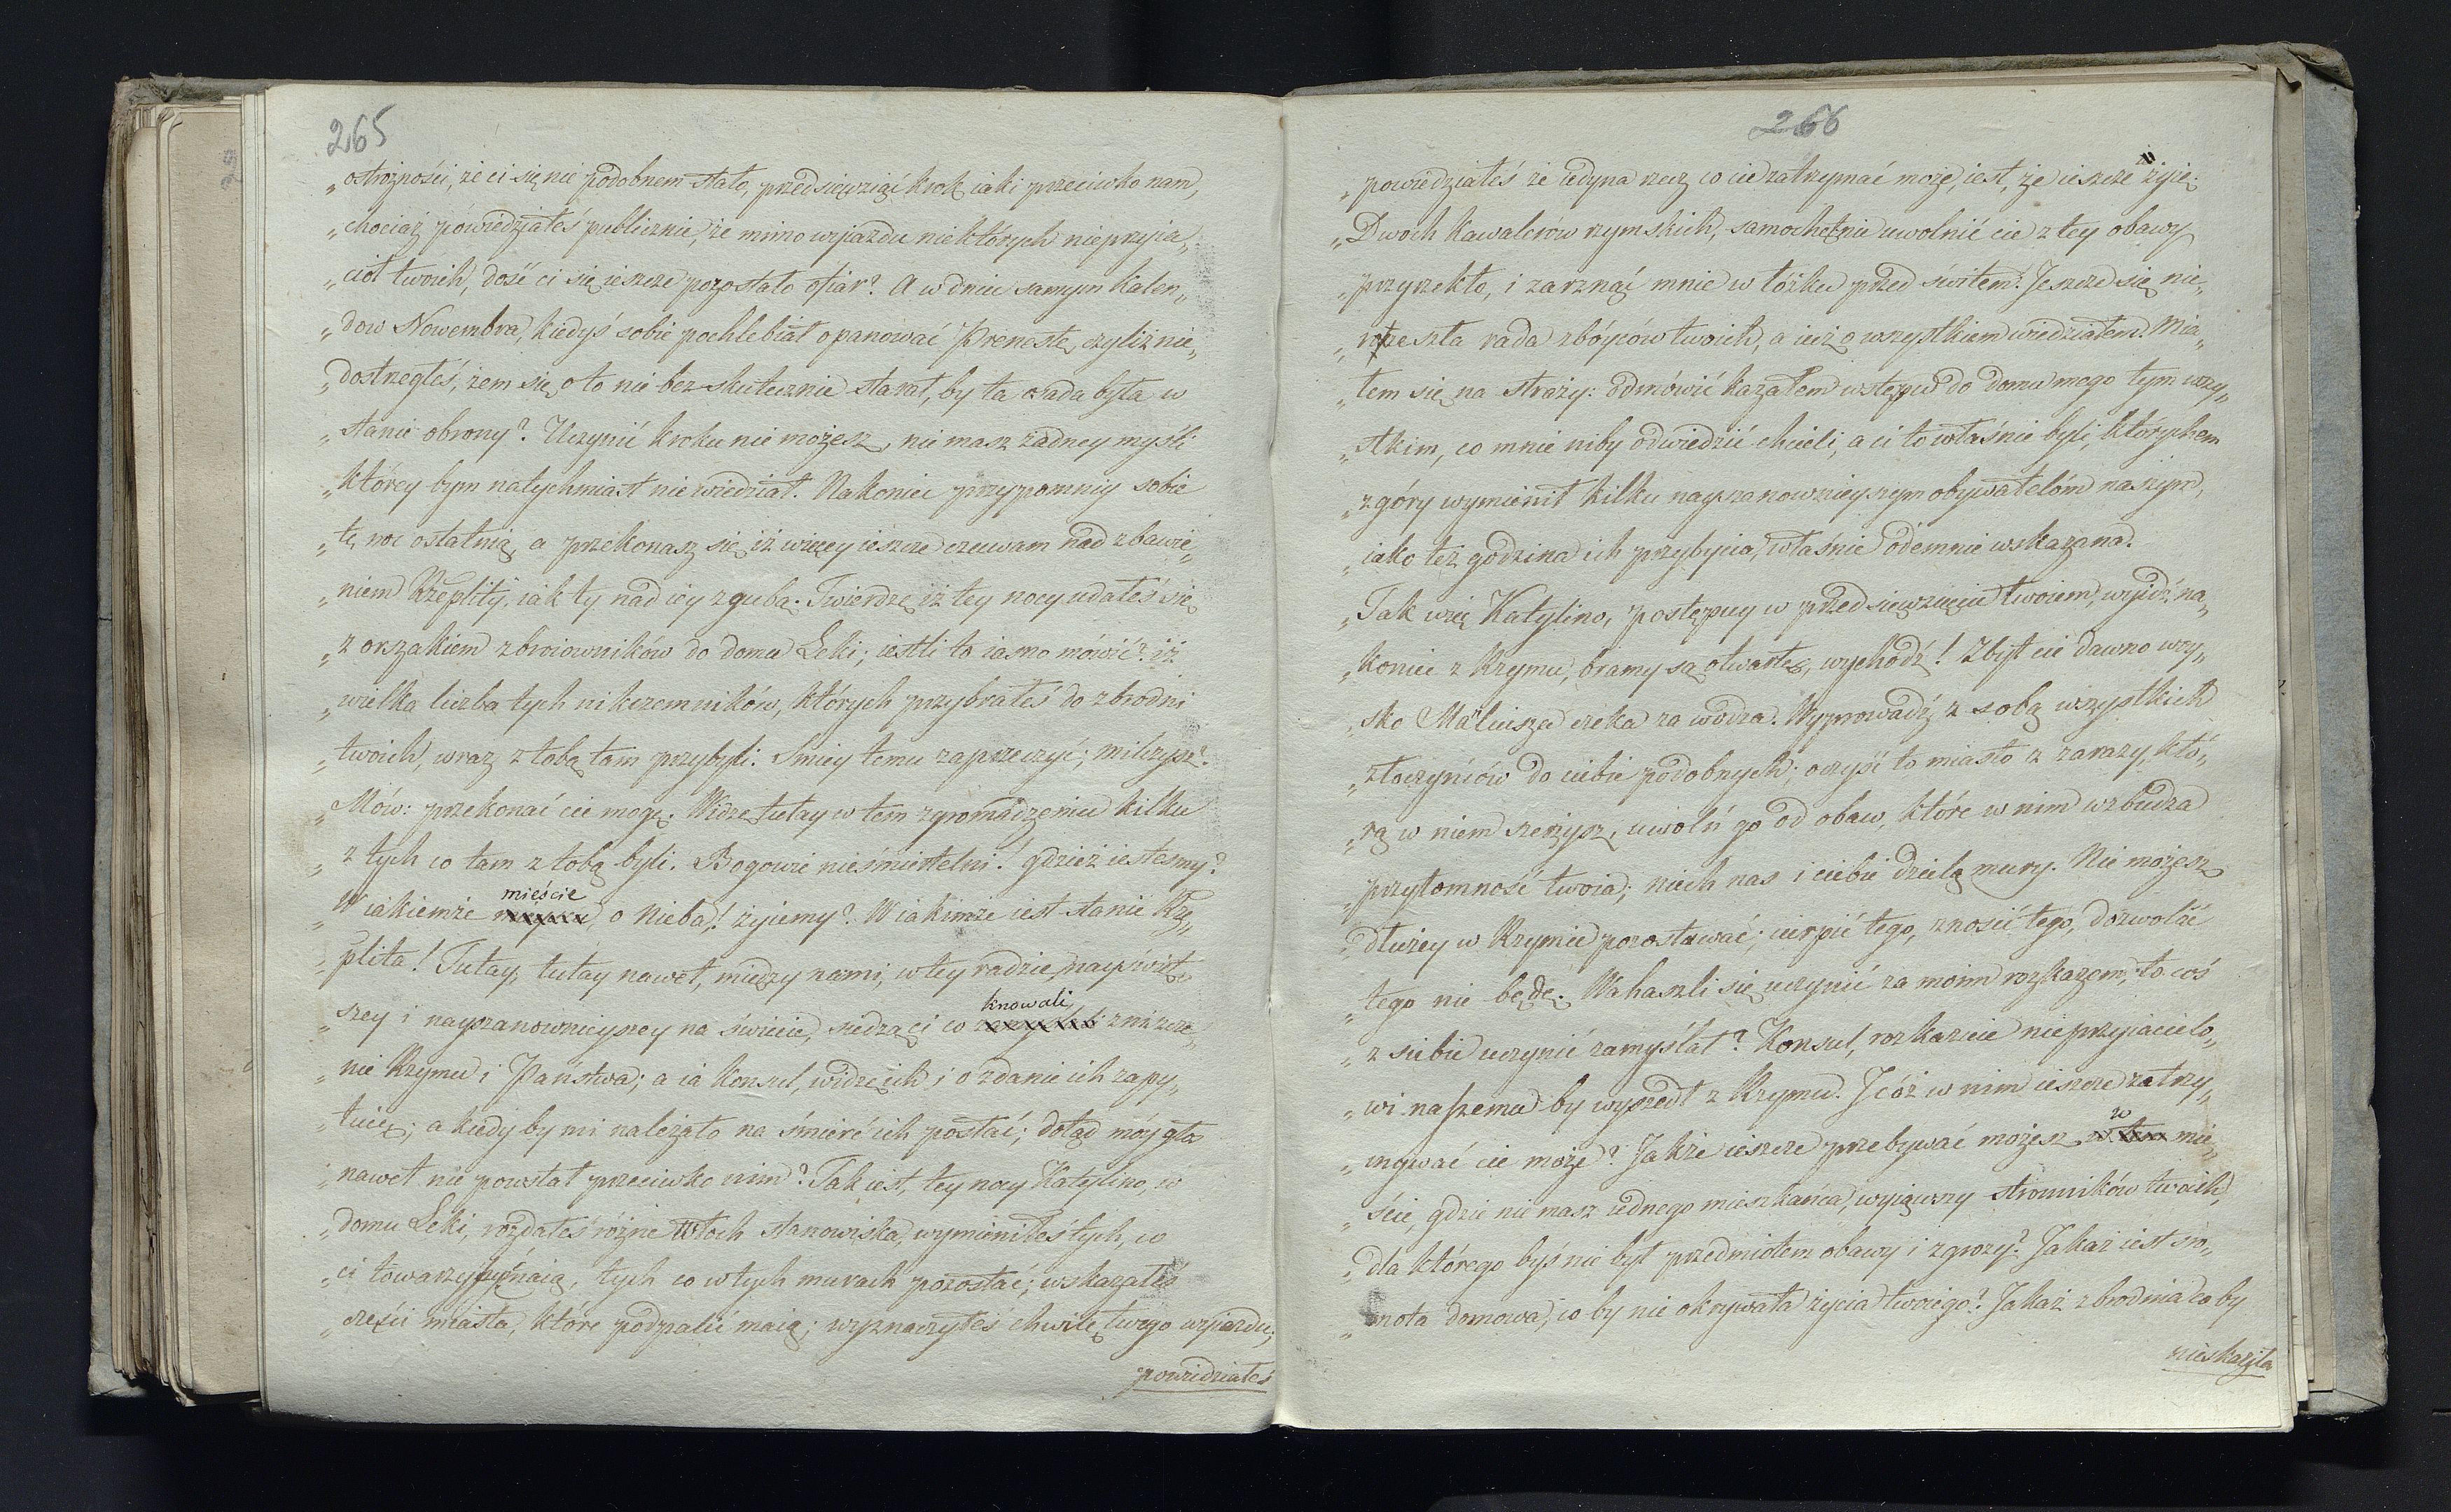 265
„ostrożności, że ci się nie podobnem stało, przedsięwziąć krok iaki przeciwko nam,
„chociaż powiedziałeś publicznie, że mimo wyiazdu niektórych nieprzyia„
„ciół twoich, dość ci się ieszcze pozostało ofiar? A w dniu samym Kalen„
„dow Nowembra, kiedyś sobie pochlebiał opanować Preneste, czyliż nie„
„dostrzegłeś, żem się o to nie bezskutecznie starał, by ta osada była w
„stanie obrony? Uczynić kroku nie możesz, nie masz żadney myśli
„którey bym natychmiast nie wiedział. Nakoniec przypomniy sobie
„tę noc ostatnią, a przekonasz się iż więcey ieszcze czuwam nad zbawie„
„niem Rzeplity, iak ty nad iey zgubą. Twierdzę iż tey nocy udałeś się
„z orszakiem zbroiowników do domu Leki; iestli to iasno mówić? iż
„wielka liczba tych nikczemników, których przybrałeś do zbrodni
„twoich, wraz z tobą tam przybyli. Smiey temu zaprzeczyć; milczysz?
„Mów: przekonać cie mogę. Widzę tutay w tem zgromadzeniu kilku
„z tych co tam z tobą byli. Bogowie nieśmiertelni! gdzież iestesmy?
mieście
„W iakiemże o Nieba! żyiemy? W iakimże iest stanie Rze„
„plita! Tutay, tutay nawet, między nami, w tey radzie nayświęt„
knowali
„szey i nayszanownieyszey na świecie, siedzą ci co zniszcze„
„nie Rzymu i Państwa; a ia Konsul, widzę ich i o zdanie ich zapy„
„tuię; a kiedy by mi należało na śmierć ich posłać; dotąd móy głos
„nawet nie powstał przeciwko nim? Tak iest, tey nocy Katylino, w
„domu Leki, rozdałeś różne Włoch stanowiska, wymieniłeś tych, co
„ci towarzyszyć maią, tych co w tych murach pozostać; wskazałeś
„części miasta, które podpalić maią; wyznaczyłeś chwilę twego wyiazdu;
powiedziałeś
266
„powiedziałeś że iedyna rzecz co cie zatrzymać może, iest, że ieszcze żyię.
„Dwoch Kawalerów rzymskich, samochętnie uwolnić cie z tey obawy
„przyrzekło, i zarznąć mnie w łóżku przed świtem. Jeszcze się nie„
„rozeszła rada zbóyców twoich, a iuż o wszystkiem wiedziałem. Mia„
„łem się na straży: odmówić kazałem wstępu do domu mego tym wszy„
„stkim, co mnie niby odwiedzić chcieli, a ci to właśnie byli, którychem
„z góry wymienił kilku nayszanownieyszym obywatelóm naszym,
„iako też godzina ich przybycia, właśnie odemnie wskazana.
„Tak więc Katylino, postępuy w przedsięwzięciu twoiem, wyidź na„
„koniec z Rzymu, bramy są otwarte, wychodź! Zbyt cie dawno woy„
„sko Maliusza czeka za wodza. Wyprowadź z sobą wszystkich
„złoczyńców do ciebie podobnych; oczyść to miasto z zarazy, któ„
„rą w niem szerzysz, uwolń go od obaw, które w nim wzbudza
„przytomność twoia; niech nas i ciebie dzielą mury. Nie możesz
„dłużey w Rzymie pozostawać; cierpić tego, znosić tego, dozwolić
„tego nie będę. Wahaszli się uczynić za moim rozkazem, to coś
„z siebie uczynić zamyślał? Konsul, rozkazuie nieprzyiacielo„
„wi naszemu by wyszedł z Rzymu. I cóż w nim ieszcze zatrzy„
w
„mywać cie może? Jakże ieszcze przebywać możesz mie„
„ście, gdzie nie masz iednego mieszkańca, wyiąwszy stronników twoich,
„dla którego byś nie był przedmiotem obawy i zgrozy? Jakaż iest sro„
„mota domowa, co by nie okrywała życia twoiego? Jakaż zbrodnia co by
nieskaziła